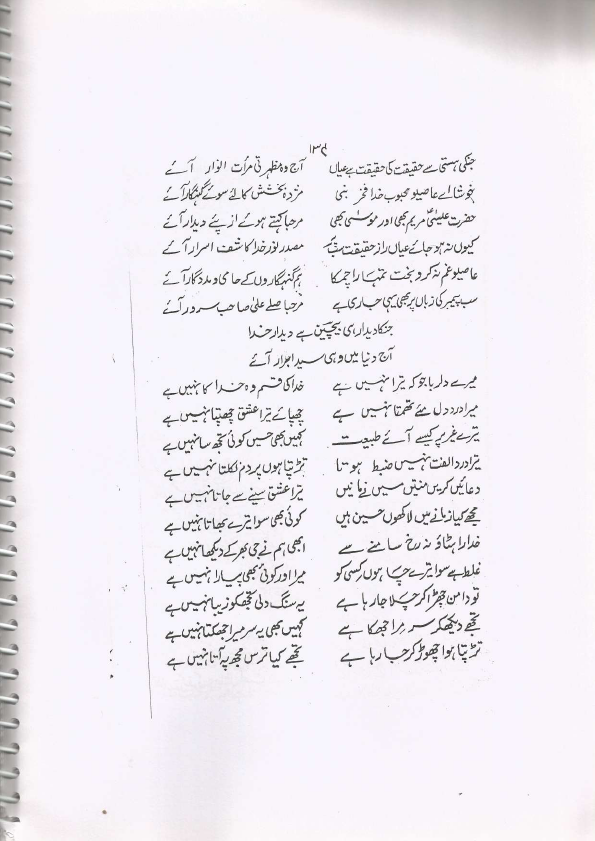 ۱۳۹
جنکی ہستی سے حقیقت کی حقیقت ہے عیاں آج وہ مظہر تی مرأت انوار آئے
خوشا اے عاصیو محبوب خدا فخر نبی مژدہ بخشش کا لئے سوئے گنہگار آئے
حضرت عیسیٰؑ مریم بھی اور موسیٰ بھی مرحبا کہتے ہوئے از پئے دیدار آئے
کیوں نہ ہو جائے عیاں راز حقیقت سب پر مصدر نور خدا کاشف اسرار آئے
عاصیو غم نہ کرو بخت تمہارا چمکا ہم گنہگاروں کے حامی و مددگار آئے
سب پیمبر کی زباں پر بھی یہی جاری ہے مرحبا صلے علیٰ صاحب سرور آئے
جنکا دیدار ہی بیچین ہے دیدار خدا
آج دنیا میں وہی سید ابرار آئے
میرے دلربا جو کہ تیرا نہیں ہے خدا کی قسم وہ خدا کا نہیں ہے
میرا درد دل سے تھمتا نہیں ہے چھپائے ترا عشق چھپتا نہیں ہے
تیرے غیر پر کیسے آئے طبیعت کہیں بھی حسیں کوئی تجھ سا نہیں ہے
تیرا درد الفت نہیں ضبط ہوتا تڑپتا ہوں پر دم نکلتا نہیں ہے
دعائیں کریں منتیں میں نے مانیں ترا عشق سینے سے جاتا نہیں ہے
مجھے کیا زمانے میں لاکھوں حسین ہیں کوئی بھی سوا تیرے بھاتا نہیں ہے
خدارا ہٹاؤ نہ رخ سامنے سے ابھی ہم نے جی بھر کے دیکھا نہیں ہے
غلط ہے سوا تیرے چاہوں کسی کو میرا اور کوئی بھی پیارا نہیں ہے
تو دامن چھڑا کر چلا جا رہا ہے یہ سنگ دلی تجھکو زیبا نہیں ہے
تجھے دیکھکر سر مرا جھکا ہے کہیں بھی یہ سر میرا جھکتا نہیں ہے
تڑپتا ہوا چھوڑ کر جا رہا ہے تجھے کیا ترس مجھ پہ آتا نہیں ہے